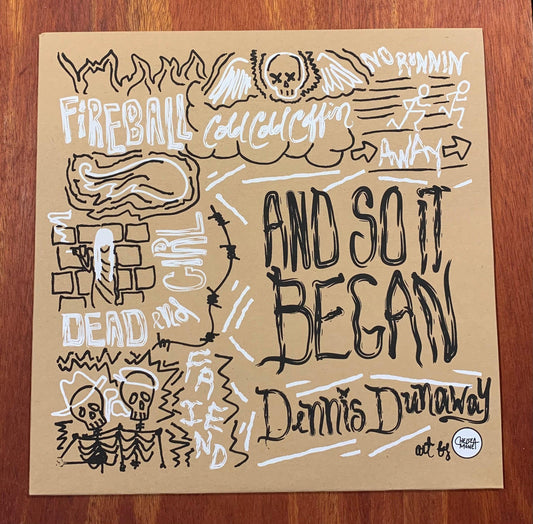 FIREBALL
Cold Cold Coffin
NO RUNNIN
AWAY
GIRL
AND SO IT
BEGAN
DEAD and
FRIEND
Dennis Dunaway
art by